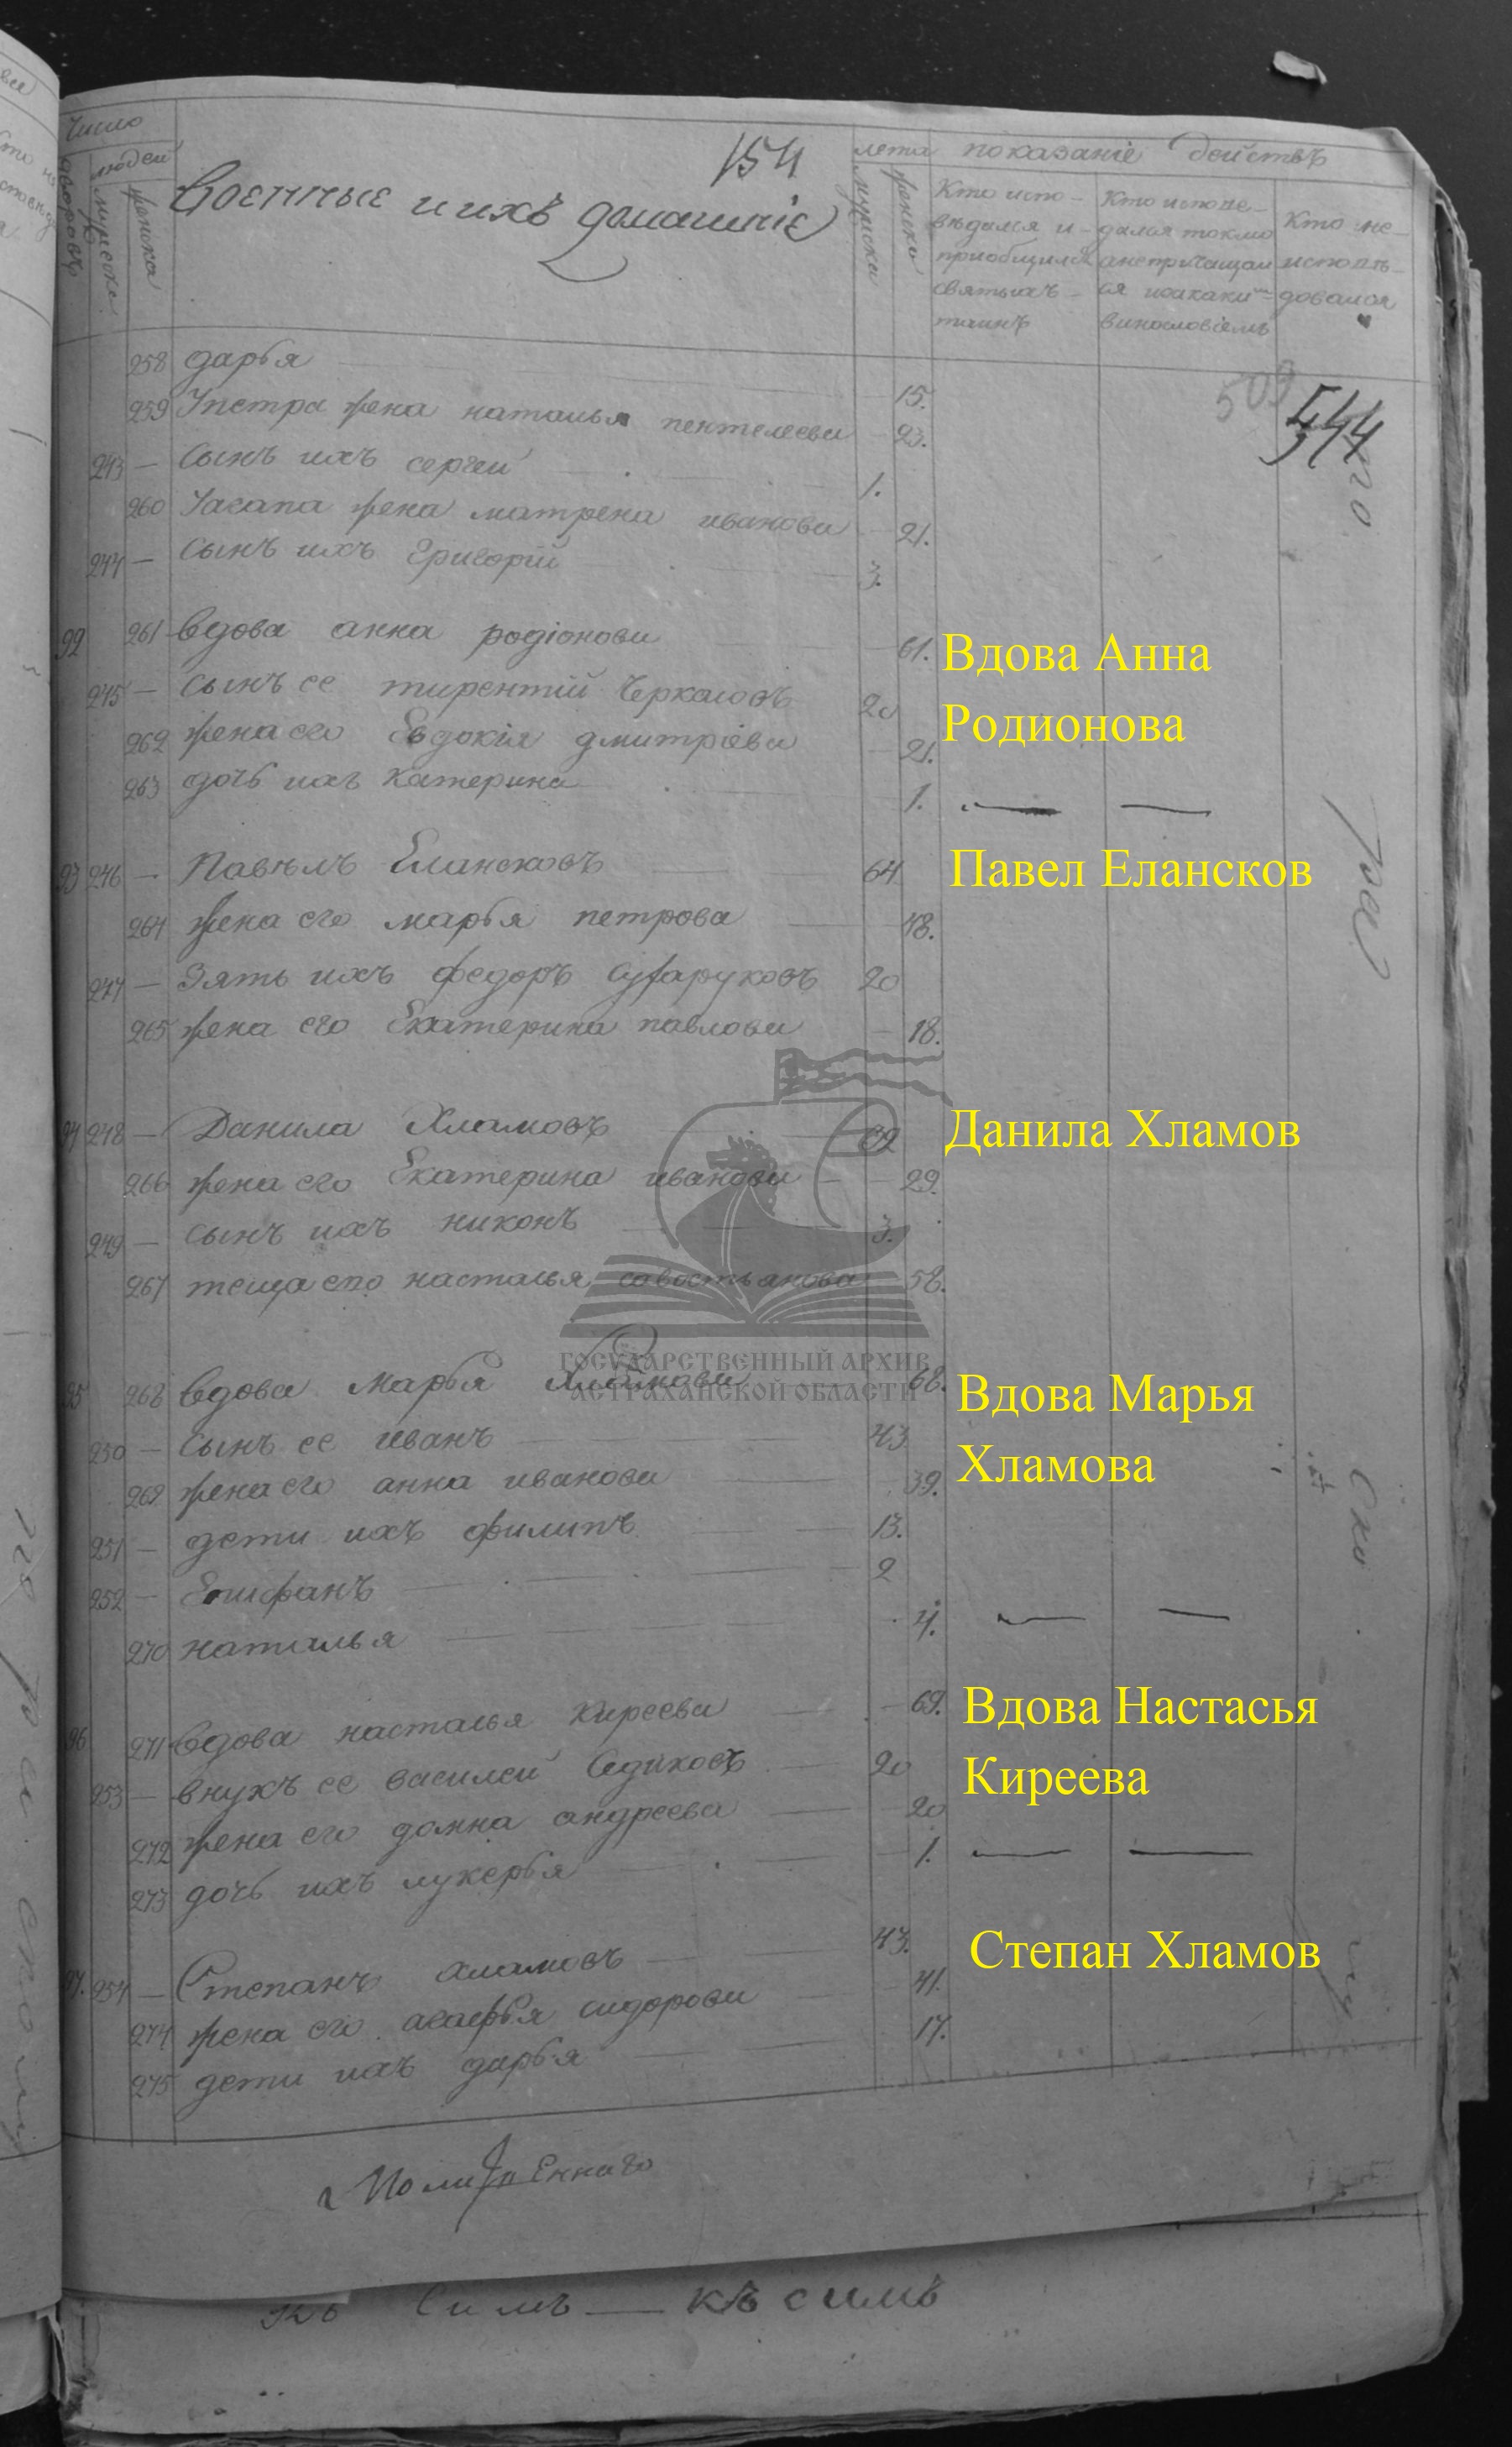 Число
людей
дворовъ
мужеска
женска
Военные и ихъ домашнiе
154
лета
мужска
женско
показанiе действъ
Кто испо-
ведался и
приобщился
святыхъ
таинъ
Кто испове-
дался токмо
а не причащал
ся и за каким
винословiемъ
Кто не
исповѣ-
довался
509
544
258 дарья 15.
259 Упетра жена наталья пентелеева 23.
243 — Сынъ ихъ сергеи 1.
260 жена матрена иванова 21.
244 — Сынъ ихъ Григорiй 3.
92 261 Вдова анна родiонова 61.
Вдова Анна
Родионова
245 — Сынъ ее тирентiй Черкасовъ 20
262 жена его Евдокiя дмитрiева 21.
263 дочь ихъ катерина 1.
93 246 — Павѣлъ Елансковъ 64.
Павел Елансков
264 жена его марья петрова 48.
247 — Зять ихъ федоръ 20
265 жена его Екатерина павлова 18.
94 248 — Данила Хламовъ
Данила Хламов
266 жена его Екатерина иванова 29.
249 — сынъ ихъ никонъ 3.
267 теща его настасья савостьянова 58.
ГОСУДАРСТВЕННЫЙ АРХИВ
АСТРАХАНСКОЙ ОБЛАСТИ
95 268 Вдова Марья Хламова 68.
Вдова Марья
Хламова
250 — Сынъ ее иванъ 43
269 жена его анна иванова 39.
251 — дети ихъ филипъ 13.
252 — Епифанъ 2
270 наталья 4.
96 271 Вдова настасья Киреева 69.
Вдова Настасья
Киреева
253 — внукъ ее василей Седиковъ 20
272 жена его домна андреева 20
273 дочь ихъ лукерья 1.
97. 254 — Степанъ хламовъ 43.
Степан Хламов
274 жена его агафья сидорова 41.
275 дети ихъ дарья 17.
къ симъ